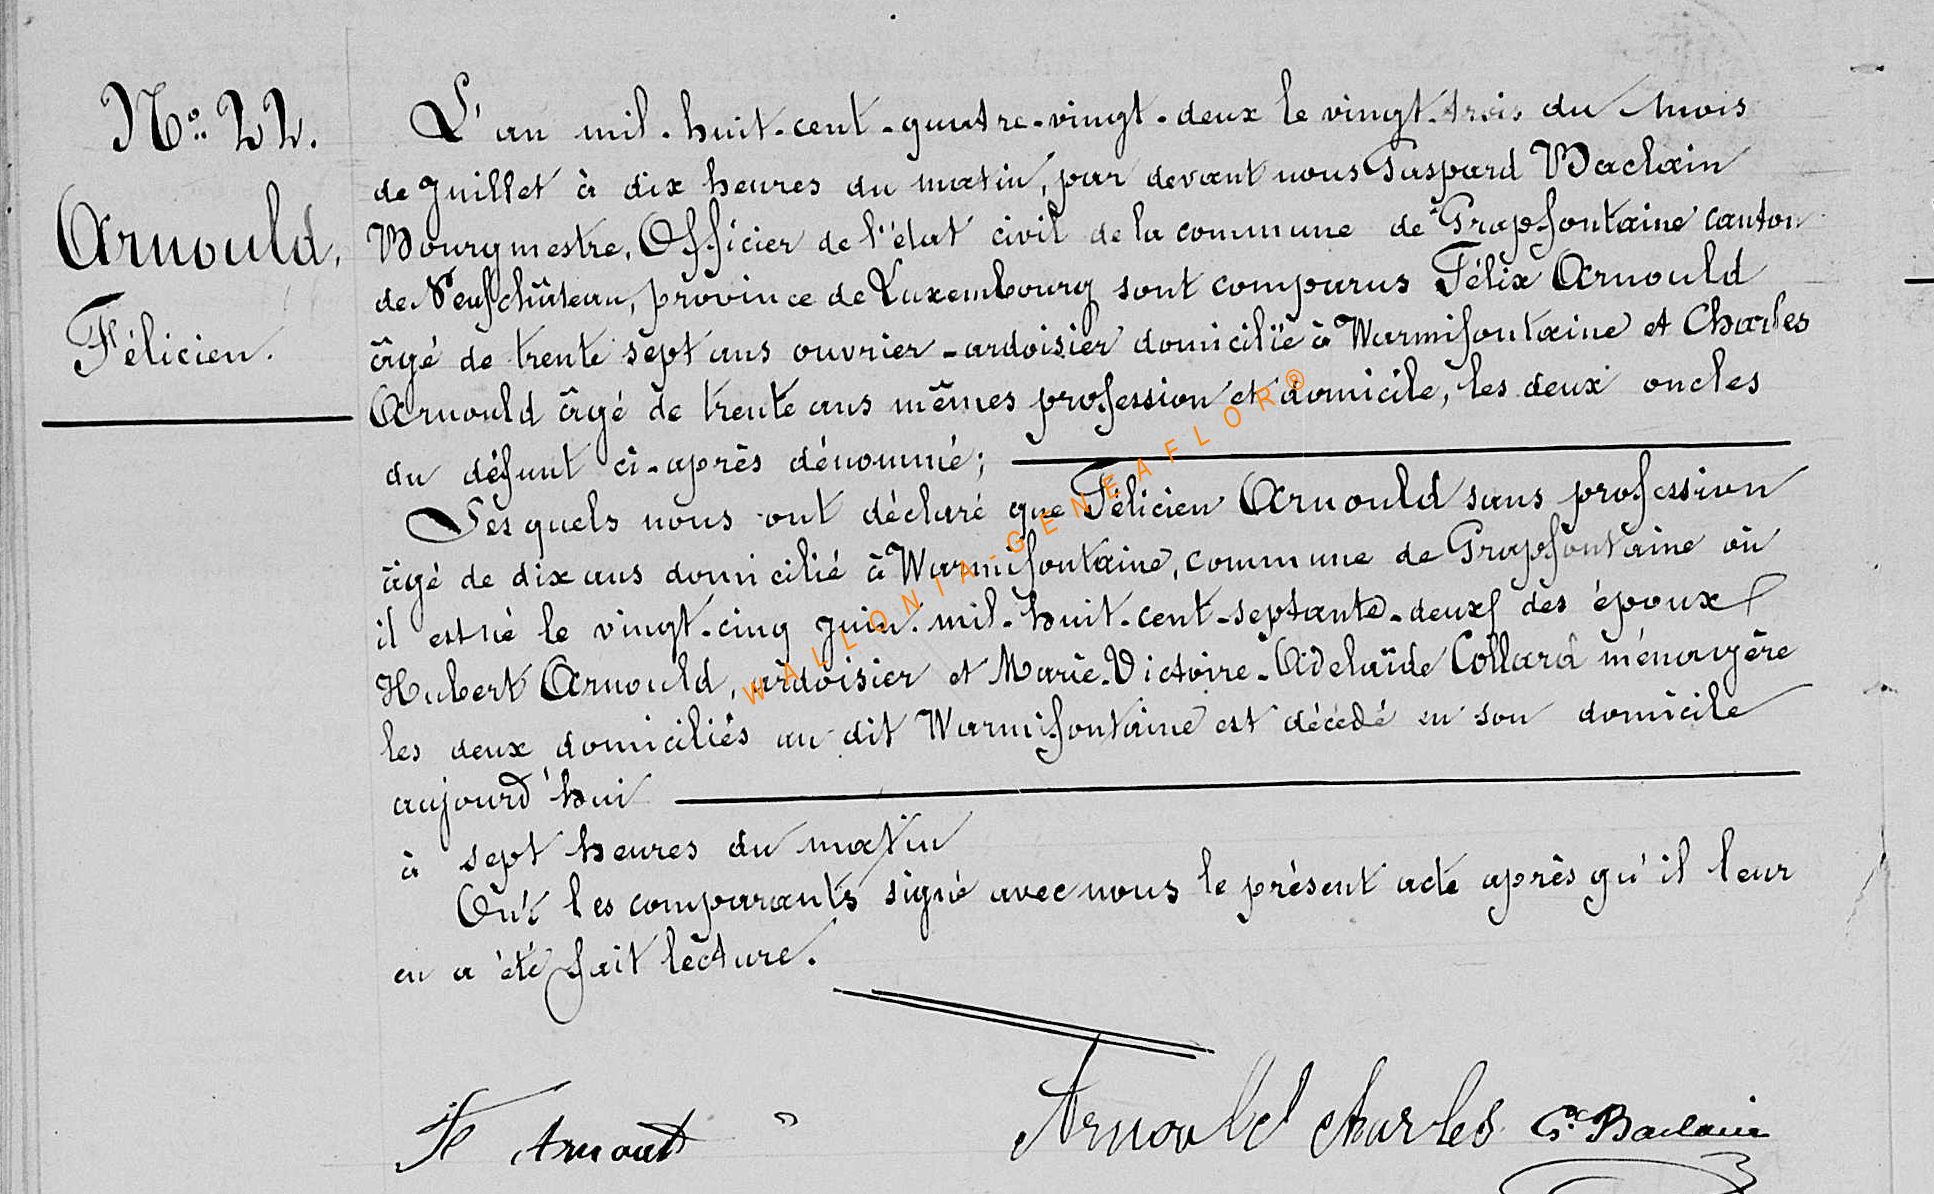 N° 22.
Arnould,
Félicien.
L'an mil-huit-cent-quatre-vingt-deux le vingt-trois du mois
de Juillet à dix heures du matin, par devant nous Gaspard Baclain
Bourgmestre, Officier de l'état civil de la commune de Grapfontaine canton
de Neufchâteau, province de Luxembourg sont comparus Félix Arnould
âgé de trente sept ans ouvrier-ardoisier domicilié à Warmifontaine et Charles
Arnould âgé de trente ans mêmes profession et domicile, les deux oncles
du défunt ci-après dénommé;
Lesquels nous ont déclaré que Félicien Arnould sans profession
âgé de dix ans domicilié à Warmifontaine, commune de Grapfontaine où
il est né le vingt-cinq juin mil-huit-cent-septante-deux des époux
Hubert Arnould, ardoisier et Marie-Victoire-Adelaïde Collard ménagère
les deux domiciliés au dit Warmifontaine est décédé en son domicile
aujourd'hui
à sept heures du matin
Ont les comparants signé avec nous le présent acte après qu'il leur
en a été fait lecture.
Arnould Charles G. Baclain
WALLONIA-GENEAFLOR®